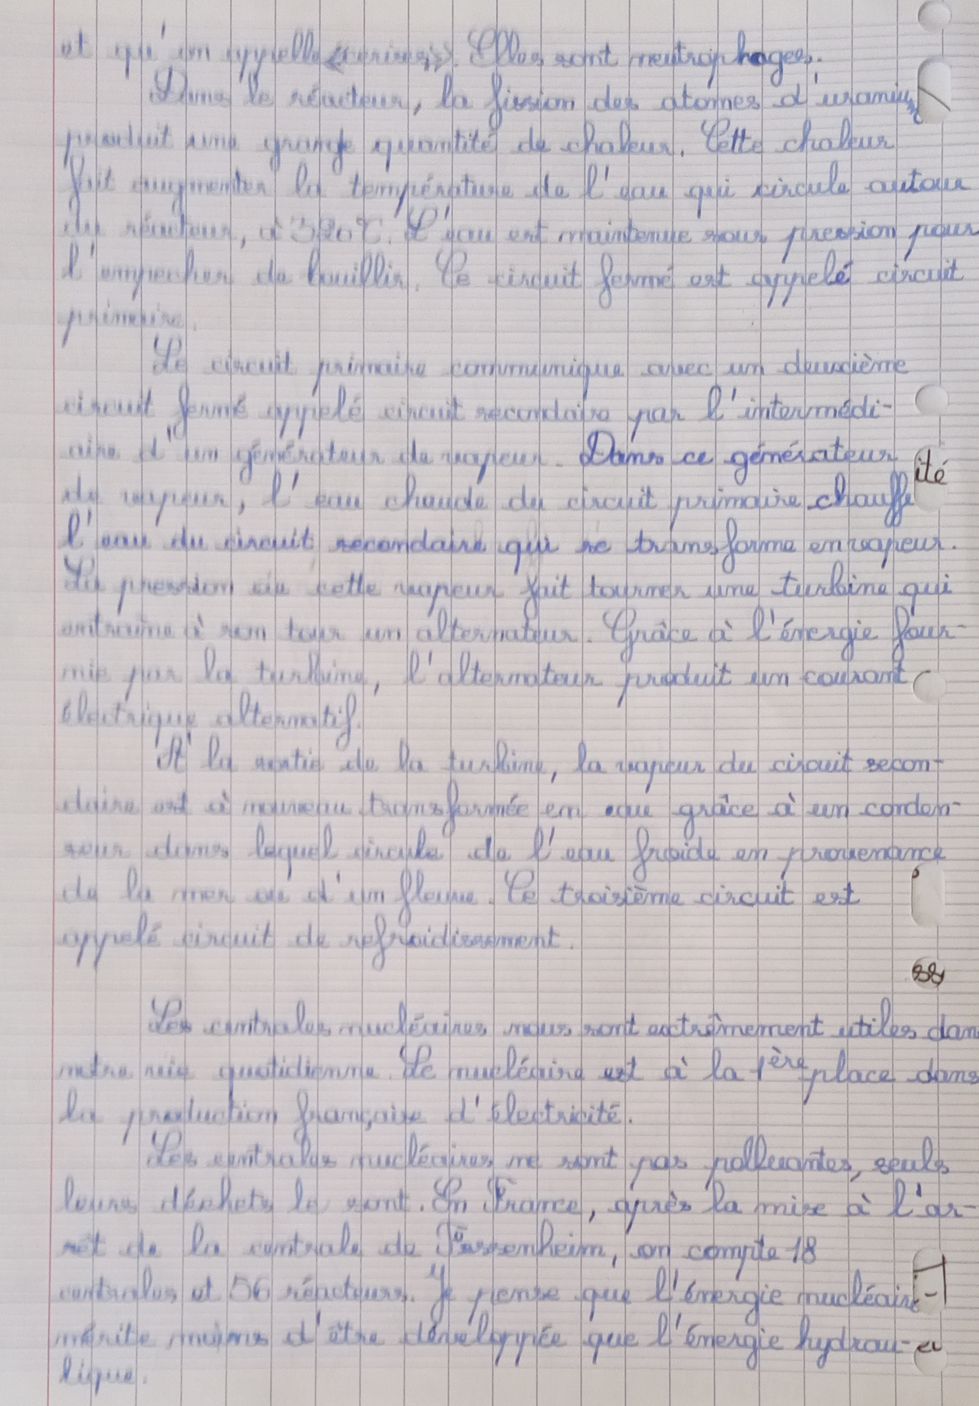 et qu'on appelle Elles sont neutrophages.
Dans le réacteur, la fission des atomes d'uranium
produit une grande quantité de chaleur. Cette chaleur
fait augmenter la température de l'eau qui circule autour
du réacteur, à 320°C. L'eau est maintenue sous pression pour
l'empecher de bouillir. Ce circuit fermé est appelé circuit
primaire.
Le circuit primaire communique avec un deuxième
circuit fermé appelé circuit secondaire par l'intermédi-
aire d'un générateur de vapeur. Dans ce générateur
ité
de vapeur, l'eau chaude du circuit primaire chauffe
l'eau du circuit secondaire qui se transforme en vapeur.
La pression de cette vapeur fait tourner une turbine qui
entraîne à son tour un alternateur. Grâce à l'énergie four-
nie par la turbine, l'alternateur produit un courant
électrique alternatif.
A la sortie de la turbine, la vapeur du circuit secon-
daire est à nouveau transformée en eau grâce à un conden-
seur dans lequel circule de l'eau froide en provenance
de la mer ou d'un fleuve. Ce troisième circuit est
appelé circuit de refroidissement.
Les centrales nucléaires nous sont extrêmement utiles dans
notre vie quotidienne. Le nucléaire est à la 1ère place dans
la production française d'électricité.
Les centrales nucléaires ne sont pas polluantes, seuls
leurs déchets le sont. En France, après la mise à l'ar-
rêt de la centrale de on compte 18
centrales et 56 réacteurs. Je pense que l'énergie nucléaire
mérite moins d'être développée que l'énergie hydrau-
lique.